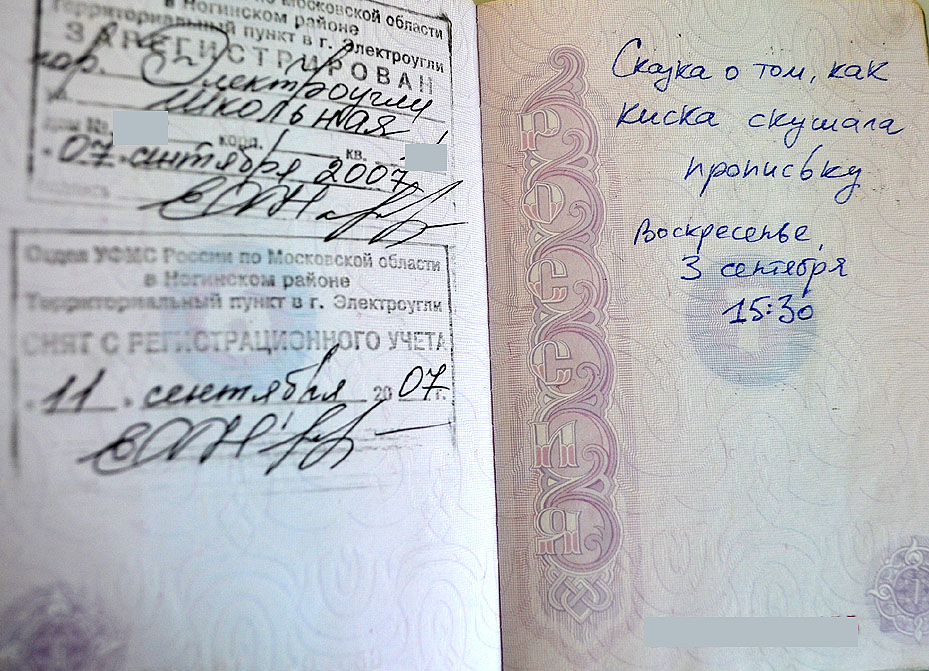 Московской области
в Ногинском районе
Территориальный пункт в г. Электроугли
ЗАРЕГИСТРИРОВАН
гор. Электроугли
Школьная
дом № корп. кв.
"07" сентября 2007
Отдел УФМС России по Московской области
в Ногинском районе
Территориальный пункт в г. Электроугли
СНЯТ С РЕГИСТРАЦИОННОГО УЧЕТА
"11" сентября 2007г.
РОССИЯ
Сказка о том, как
киска скушала
пропиську
Воскресенье,
3 сентября
15:30